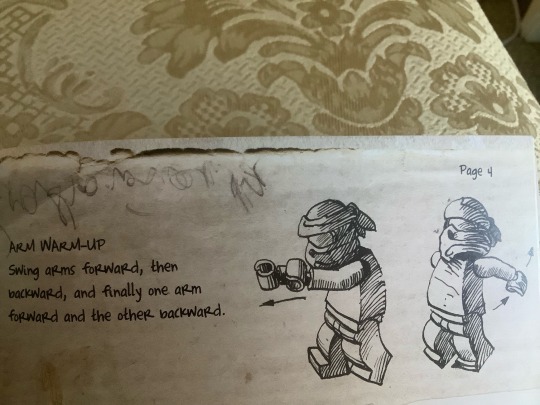 Page 4
ARM WARM-UP
Swing arms forward, then
backward, and finally one arm
forward and the other backward.